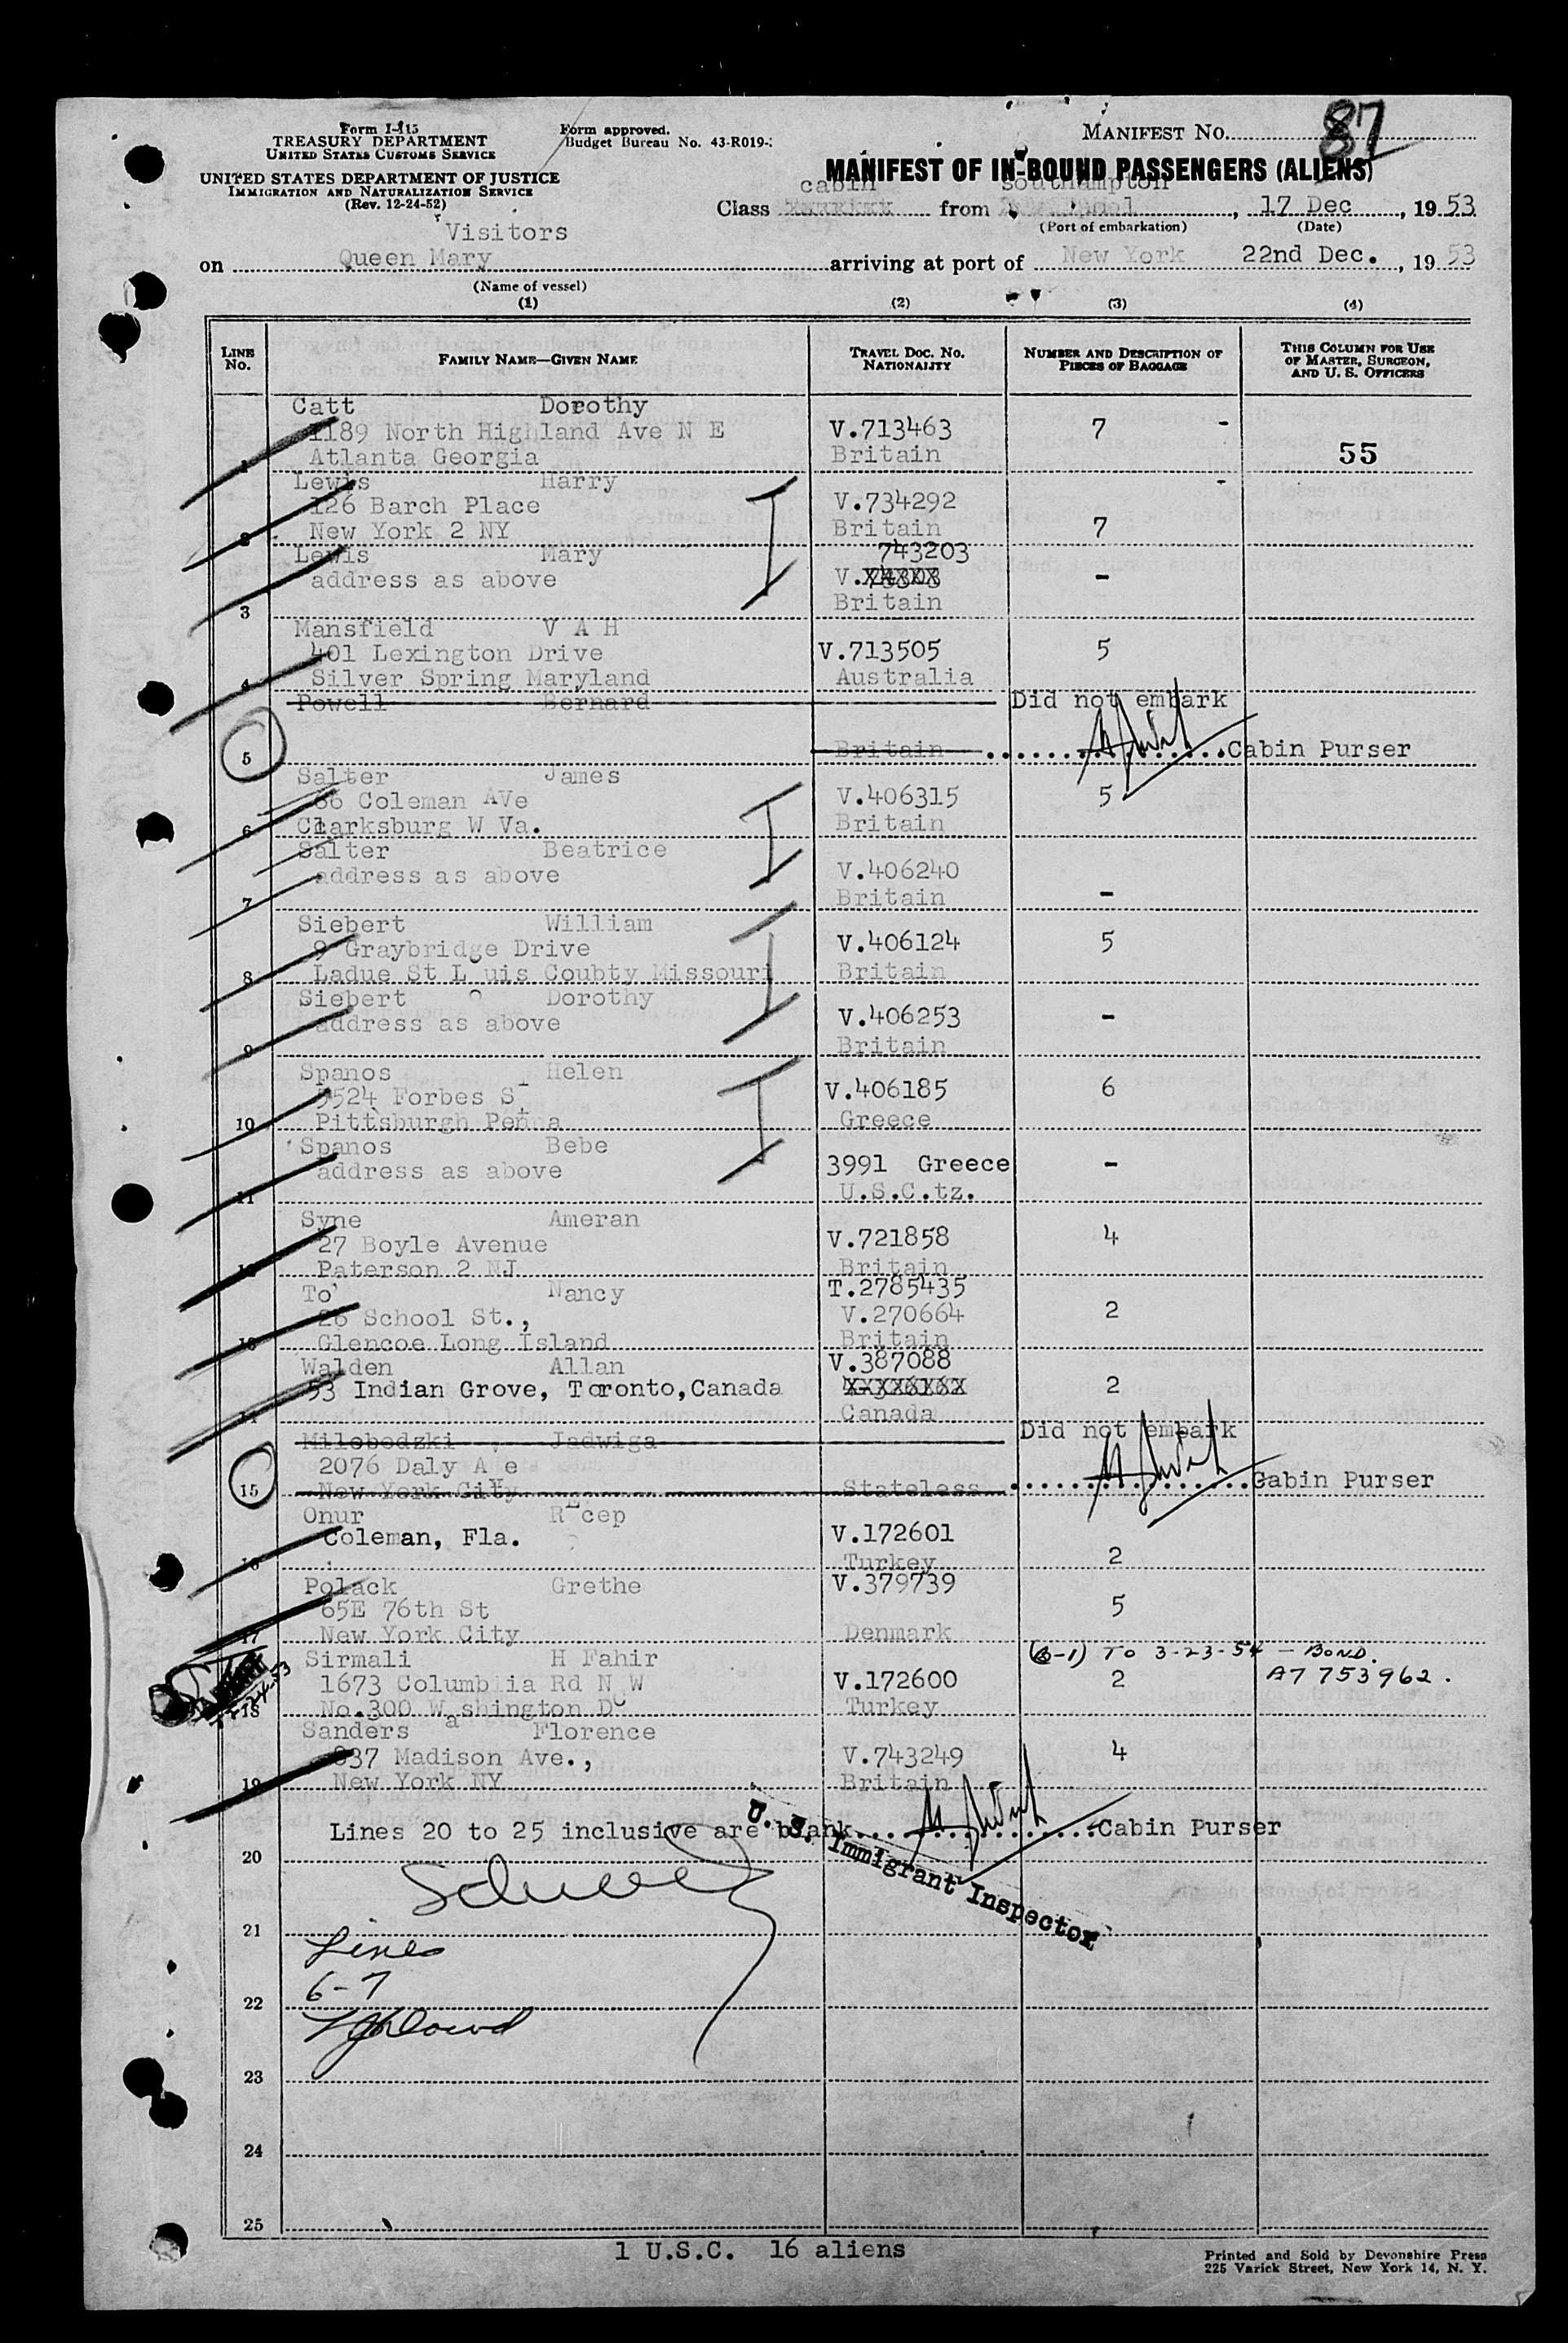 Form I-415
TREASURY DEPARTMENT
UNITED STATES CUSTOMS SERVICE
UNITED STATES DEPARTMENT OF JUSTICE
IMMIGRATION AND NATURALIZATION SERVICE
(Rev. 12-24-52)
Form approved.
Budget Bureau No. 43-R019-
MANIFEST No. 87
MANIFEST OF IN-BOUND PASSENGERS (ALIENS)
cabin southampton
Class from , 17 Dec , 19 53
(Port of embarkation) (Date)
Visitors
on Queen Mary arriving at port of New York 22nd Dec. , 19 53
(Name of vessel)
(1) (2) (3) (4)
LINE No.
FAMILY NAME—GIVEN NAME
TRAVEL DOC. NO. NATIONALITY
NUMBER AND DESCRIPTION OF PIECES OF BAGGAGE
THIS COLUMN FOR USE OF MASTER, SURGEON, AND U. S. OFFICERS
Catt Dorothy
1189 North Highland Ave N E V.713463 7 -
1 Atlanta Georgia Britain 55
Lewis Harry
126 Barch Place V.734292
2 New York 2 NY Britain 7
Lewis Mary 743203
address as above V. -
3 Britain
Mansfield V A H
401 Lexington Drive V.713505 5
4 Silver Spring Maryland Australia
Powell Bernard Did not embark
5 Britain Cabin Purser
Salter James
66 Coleman AVe V.406315 5
6 Clarksburg W Va. Britain
Salter Beatrice
address as above V.406240
7 Britain -
Siebert William
9 Graybridge Drive V.406124 5
8 Ladue St Louis Coubty Missouri Britain
Siebert Dorothy
address as above V.406253 -
9 Britain
Spanos Helen
5524 Forbes St V.406185 6
10 Pittsburgh Penna Greece
Spanos Bebe
address as above 3991 Greece -
11 U.S.C.tz.
Syne Ameran
27 Boyle Avenue V.721858 4
12 Paterson 2 NJ Britain
To Nancy T.2785435
26 School St., V.270664 2
13 Glencoe Long Island Britain
Walden Allan V.387088
53 Indian Grove, Toronto,Canada 2
14 Canada
Milobodzki Jadwiga Did not embark
2076 Daly A e
15 New York City Stateless Cabin Purser
Onur Recep
Coleman, Fla. V.172601
16 Turkey 2
Polack Grethe V.379739
65E 76th St 5
17 New York City Denmark
Sirmali H Fahir (B-1) TO 3-23-54 — BOND.
1673 Columbia Rd N W V.172600 2 A7 753962.
18 No.300 Washington DC Turkey
Sanders Florence
837 Madison Ave., V.743249 4
19 New York NY Britain
Lines 20 to 25 inclusive are blank Cabin Purser
20
U. S. Immigrant Inspector
21
Lines
6-7
22
23
24
25
1 U.S.C. 16 aliens
Printed and Sold by Devonshire Press
225 Varick Street, New York 14, N. Y.